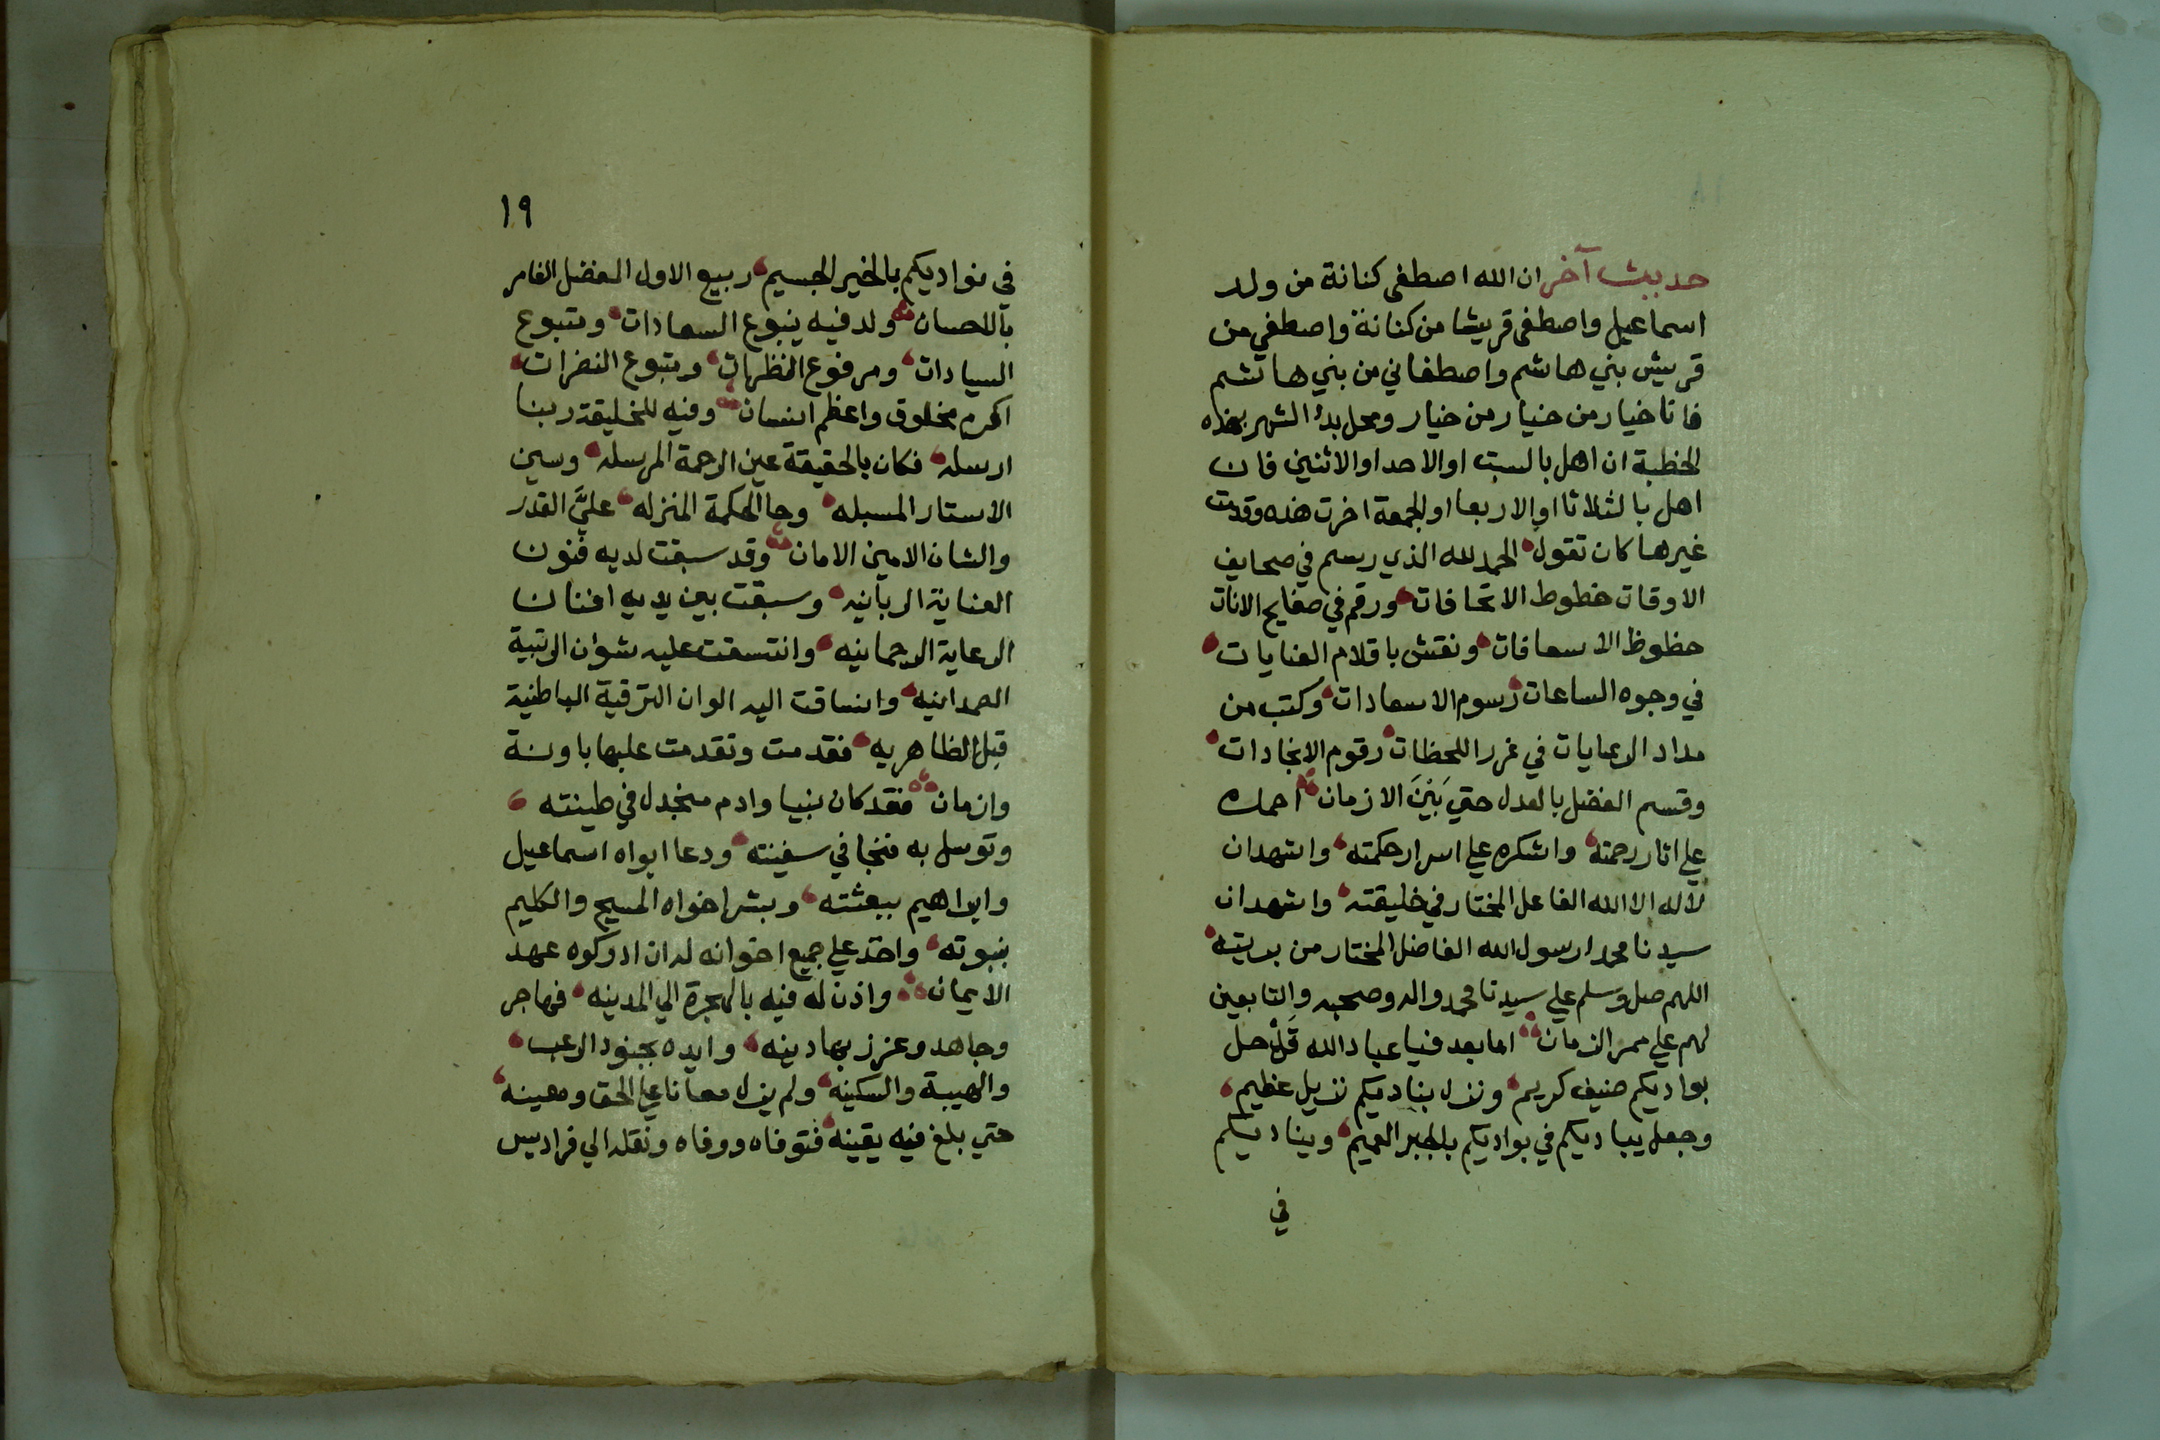 حديث آخر ان الله اصطفى كنانة من ولد
اسماعيل واصطفى قريشا من كنانة واصطفي من
قريش بني هاشم واصطفاني من بني هاشم
فانا خيار من خيار من خيار ومحل بدؤ الشهر بهذه
الخطبة ان اهل بالسبت او الاحد او الاثنين فان
اهل بالثلاثا او الاربعا او الجمعة اخرت هذه وقدمت
غيرها كان تقول الحمد لله الذي رسم في صحايف
الاوقات خطوط الاتحافات ورقم في صفايح الانات
حظوظ الاسعافات ونقش باقلام العنايات
في وجوه الساعات رسوم الاسعادات وكتب من
مداد الرعايات في غرر اللحظات رقوم الانجادات
وقسم الفضل بالعدل حتي بَيْنَ الازمان احمده
علي اثار رحمته واشكره علي اسرار حكمته واشهد ان
لا اله الا الله الفاعل المختار في خليقته واشهد ان
سيدنا محمدا رسول الله الفاضل المختار من بريته
اللهم صل وسلم علي سيدنا محمد واله وصحبه والتابعين
لهم علي ممر الزمان اما بعد فيا عباد الله قد حل
بواديكم ضيف كريم ونزل بناديكم نزيل عظيم
وجعل يباديكم في بواديكم بالجبر العميم ويناديكم
في
١٩
في نواديكم بالخير الجسيم ربيع الاول المفضل الغامر
بالاحسان ولد فيه ينبوع السعادات ومتبوع
السيادات ومرفوع النظرات ومتبوع النضرات
اكرم مخلوق واعظم انسان وفيه للخليقة ربنا
ارسله فكان بالحقيقة عين الرحمة المرسله وسين
الاستار المسبله وحا الحكمة المنزله عليَّ القدر
والشان الامين الامان وقد سبقت لديه فنون
العناية الربانيه وسبقت بين يديه افنان
الرعاية الرحمانيه وانتسقت عليه شوان الرتبية
الصمدانيه وانساقت اليه الوان الترقية الباطنية
قبل الظاهريه فقدمت وتقدمت عليها باونة
وازمان فقد كان نبيا وادم منجدل في طينته
وتوسل به فنجا في سفينته ودعا ابواه اسماعيل
وابراهيم ببعثته وبشر اخواه المسيح والكليم
بنبوته واخذ علي جميع اخوانه له ان ادركوه عهد
الايمان واذن له فيه بالهجرة الي المدينه فهاجر
وجاهد وعزز بها دينه وايده بجنود الرعب
والهيبة والسكينه ولم يزل معانا علي الحق ومعينه
حتي بلغ فيه يقينه فتوفاه ووفاه ونقله الي فراديس